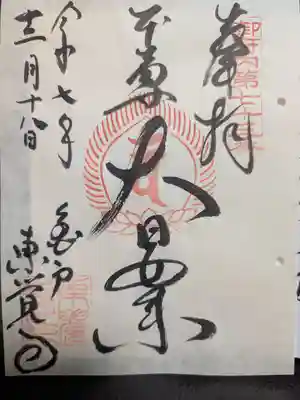 御府内第七十三番
奉拝
本尊大日如来
令和七年
十二月十八日
亀戸
東覚寺